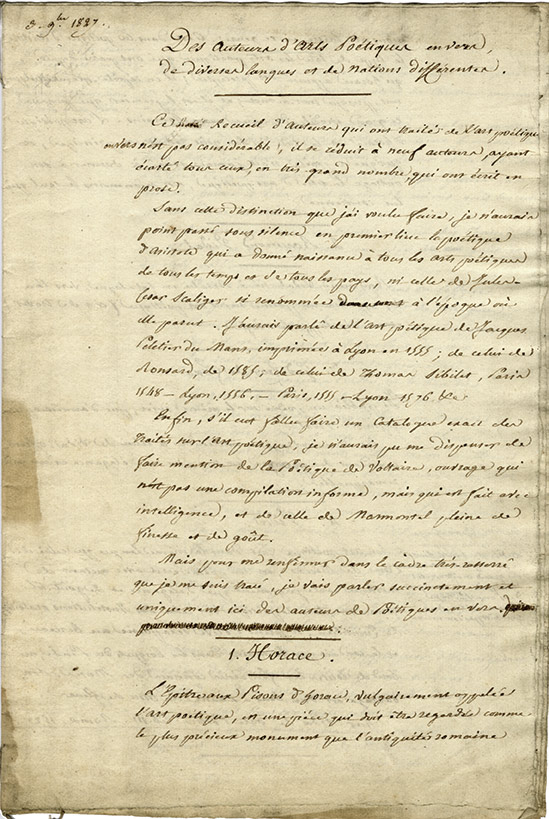 8. 9bre 1827.
Des auteurs d'Arts Poëtiques en vers,
de diverses langues et de Nations différentes.
Ce Recueil d'auteurs qui ont traités de l'art poëtique
en vers n'est pas considérable, il se réduit à neuf auteurs, ayant
écarté tous ceux, en très grand nombre qui ont écrit en
prose.
Sans cette distinction que j'ai voulu faire, je n'aurais
point passé sous silence en premier lieu la poëtique
d'Aristote qui a donné naissance à tous les arts poëtiques
de tous les temps et de tous les pays, ni celle de Jules
César Scaliger si renommée à l'époque où
elle parut. J'aurais parlé de l'art poëtique de Jacques
Peletier du Mans, imprimée à Lyon en 1555; de celui de
Ronsard, de 1585; de celui de Thomas Sibilet, Paris
1548 - Lyon, 1556, - Paris, 1555 - Lyon 1576 &c
Enfin, s'il eut fallu faire un Catalogue exact des
Traités sur l'art poëtique, je n'aurais pu me dispenser de
faire mention de la Poëtique de Voltaire, ouvrage qui
n'est pas une compilation informe, mais qui est fait avec
intelligence, et de celle de Marmontel pleine de
finesse et de goût.
Mais pour me renfermer dans le cadre très resserré
que je me suis tracé, je vais parler succinctement et
uniquement ici des auteurs de Poëtiques en vers.
1. Horace.
L'Epitre aux Pisons d'horace, vulgairement appelée
l'art poëtique, est une pièce qui doit être regardée comme
le plus précieux monument que l'antiquité romaine